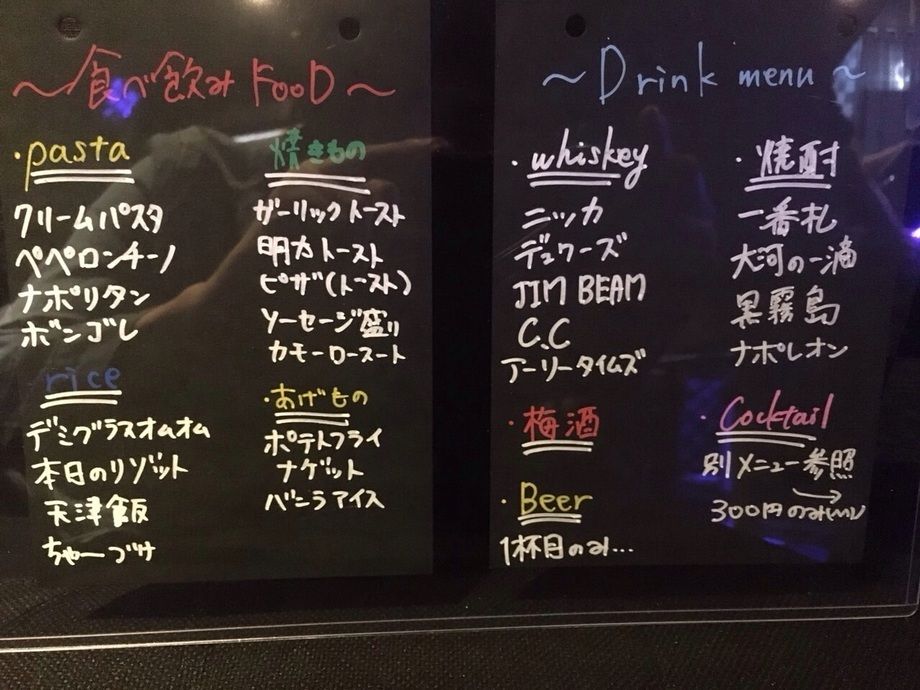 〜食べ飲み FooD〜
・pasta
クリームパスタ
ペペロンチーノ
ナポリタン
ボンゴレ
rice
デミグラスオムオム
本日のリゾット
天津飯
ちゃーづけ
焼きもの
ガーリックトースト
明太トースト
ピザ(トースト)
ソーセージ盛り
カモーロースート
・あげもの
ポテトフライ
ナゲット
バニラアイス
〜Drink menu〜
・whiskey
ニッカ
デュワーズ
JIM BEAM
C.C
アーリータイムズ
・梅酒
・Beer
1杯目のみ…
・焼酎
一番札
大河の一滴
黒霧島
ナポレオン
・Cocktail
別メニュー参照
300円のみ